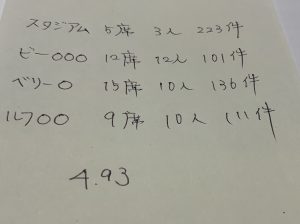 スタジアム 5席 3人 223件
ビー〇〇〇 12席 12人 101件
ベリー〇 15席 10人 136件
ルフ〇〇 9席 10人 111件
4.93